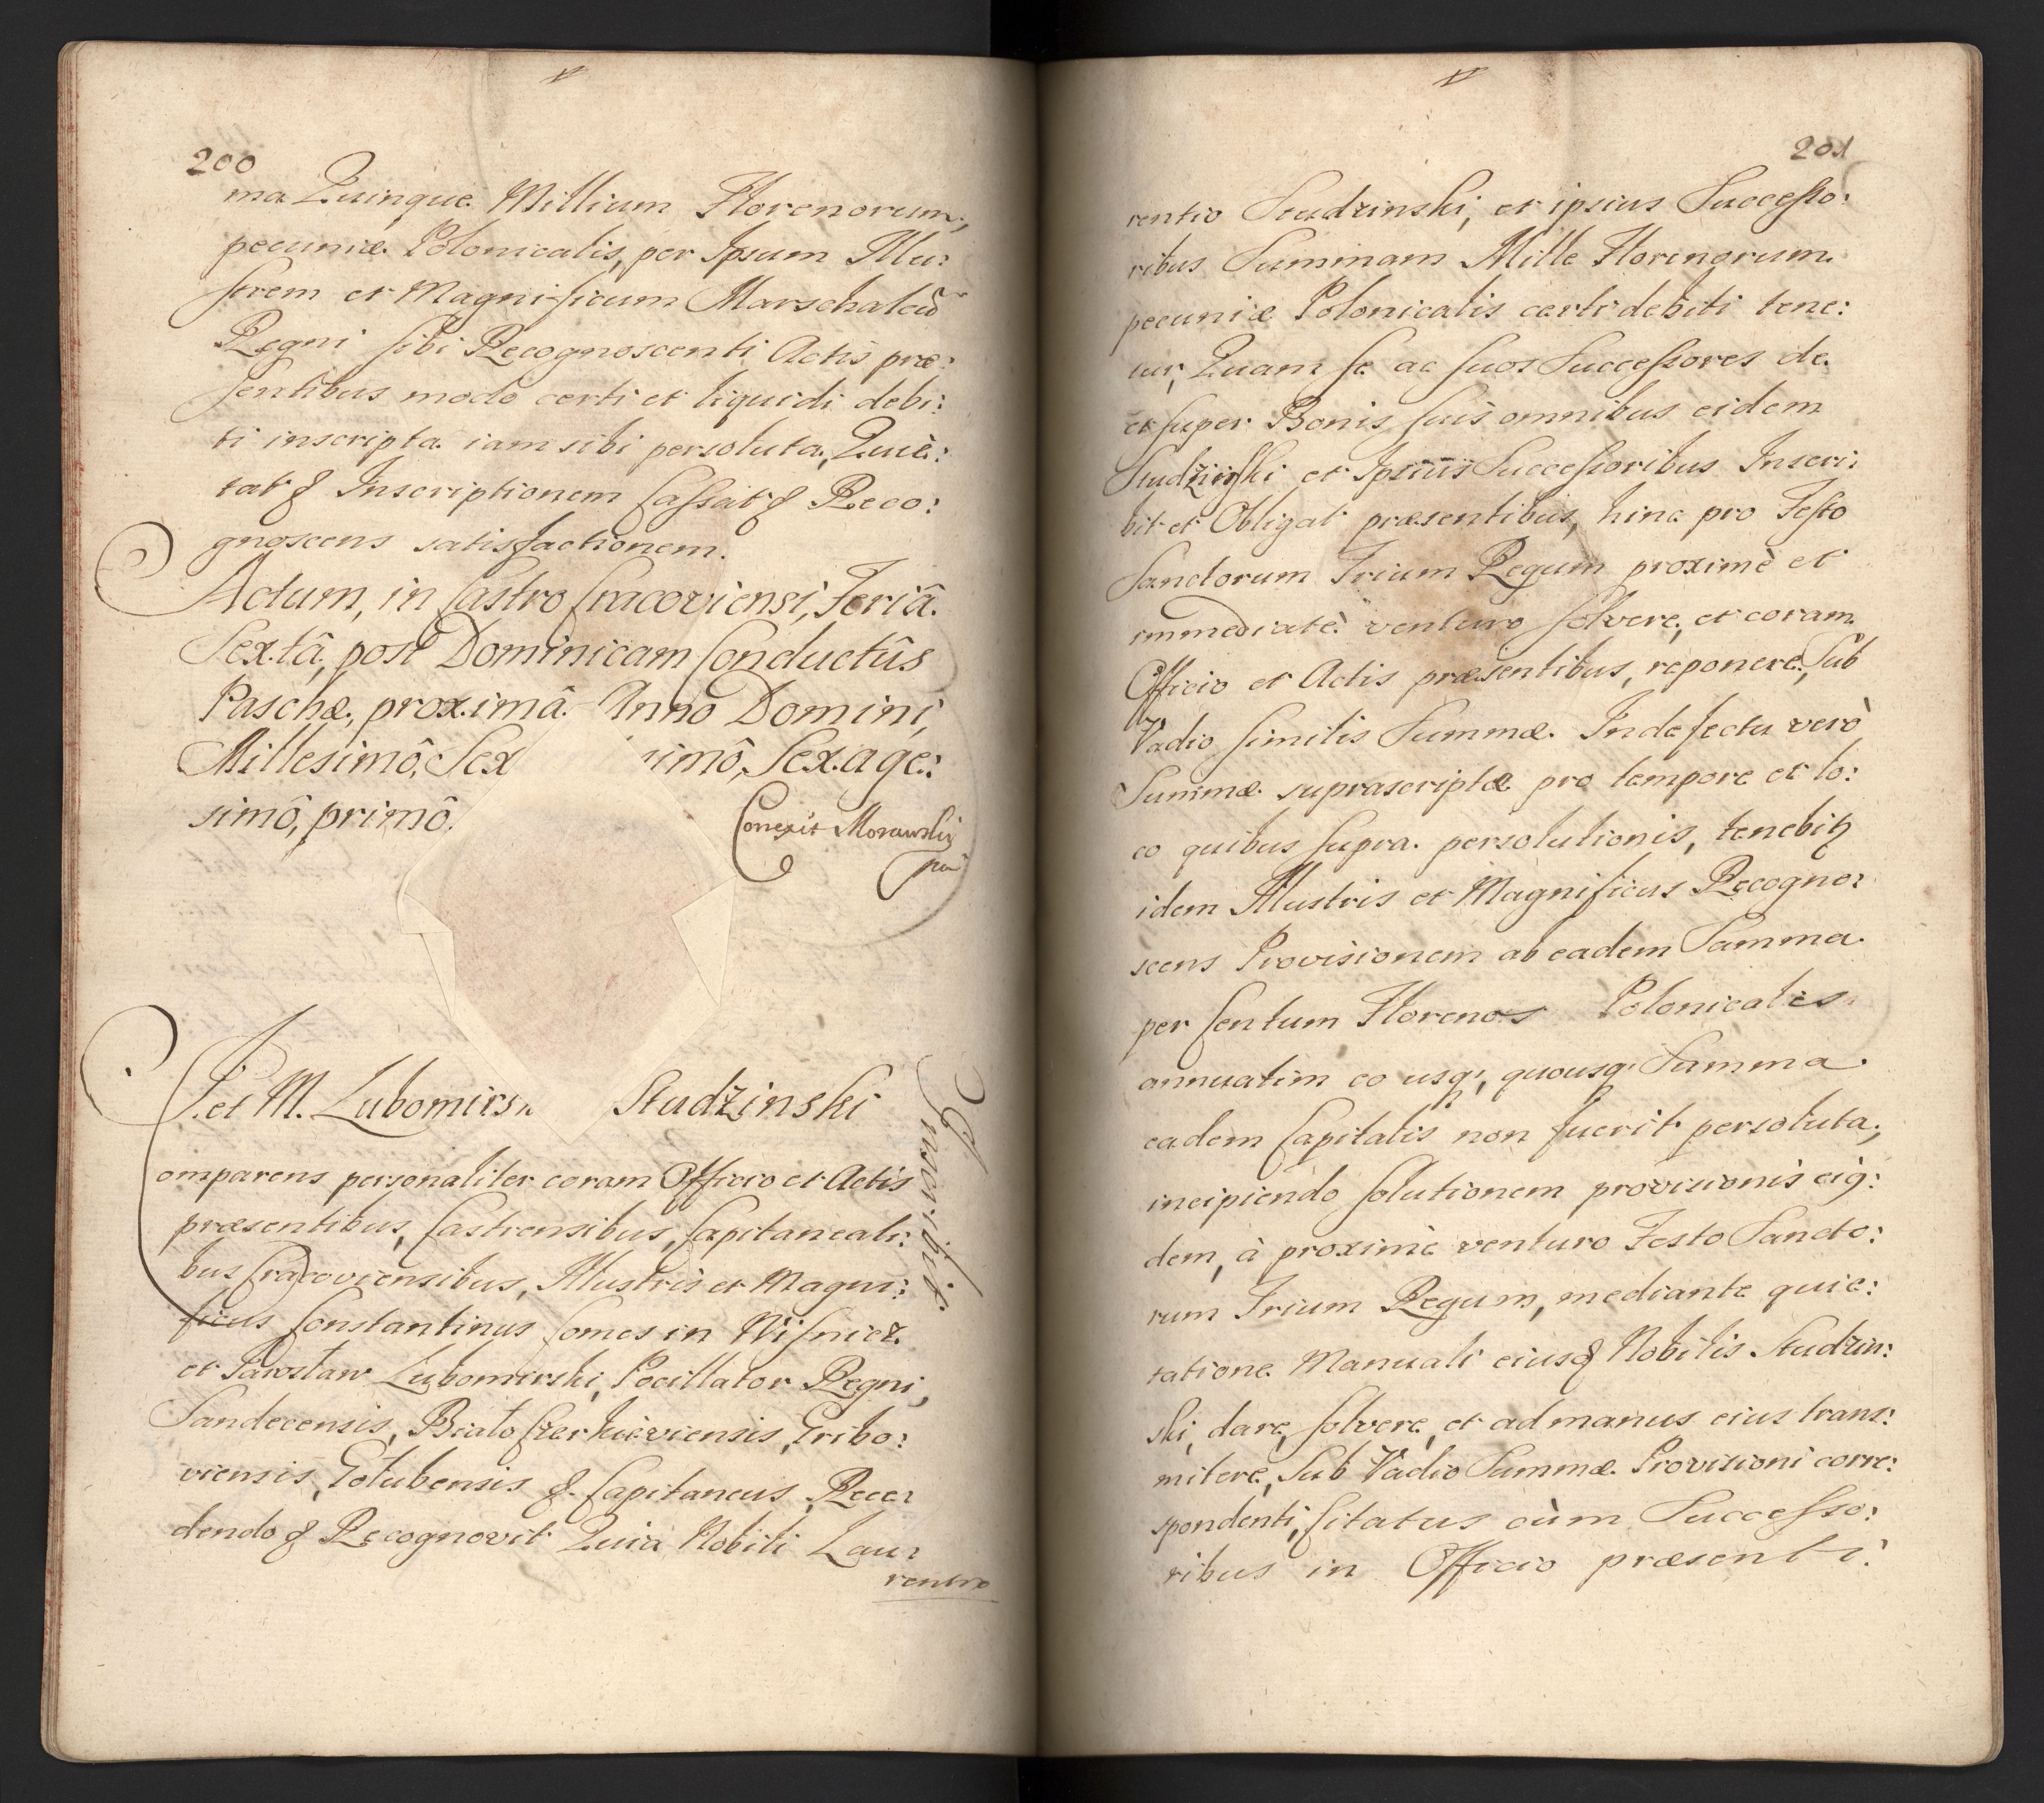 200
ma Quinque Millium Florenorum,
pecuniæ Polonicalis, per Ipsum Illu:
strem et Magnificum Marschalcũ
Regni sibi Recognoscenti Actis præ:
sentibus modo certi et liquidi debi:
ti inscripta iam sibi persoluta, Quie:
tat & Inscriptionem Cassat & Reco:
gnoscens satisfactionem.
Actum, in Castro Cracoviensi, Feriâ
Sextâ, post Dominicam Conductûs
Paschæ, proximâ. Anno Domini,
Millesimô, Sex imô, Sexage:
simô, primô.
Correxit Morawski
mp
I. et M. Lubomirs Studźinski
Inscribit
Comparens personaliter coram Officio et Actis
præsentibus, Castrensibus, Capitaneali:
bus Cracoviensibus, Illustris et Magni:
ficus Constantinus Comes in Wiśnicz
et Jarosław Lubomirski, Pocillator Regni,
Sandecensis, Białoczerkieviensis, Gribo:
viensis, Golubensis & Capitaneus, Rece:
dendo & Recognovit Quia Nobili Lau:
rentio
201
rentio Studzinski, et ipsius Successo:
ribus Summam Mille Florenorum
pecuniæ Polonicalis certi debiti tene:
tur, Quam se ac suos Successores de
et super Bonis suis omnibus eidem
Studźinski et Ipsius Successoribus Inscri:
bit et Obligat præsentibus, hinc pro Festo
Sanctorum Trium Regum proximè et
immediatè venturo solvere, et coram
Officio et Actis præsentibus, reponere, Sub
Vadio similis Summæ. In defectu verò
Summæ suprascriptæ pro tempore et lo:
co quibus supra persolutionis, tenebitʒ
idem Illustris et Magnificus Recogno:
scens Provisionem ab eadem Summa
per Centum Florenos Polonicales
annuatim eo usqʒ, quousqʒ Summa
eadem Capitalis non fuerit persoluta,
incipiendo solutionem provisionis eiꝰ:
dem, à proximè venturo Festo Sancto:
rum Trium Regum, mediante quie:
tatione Manuali eiusqʒ Nobilis Studzin:
ski, dare, solvere, et ad manus eius trans:
mitere, Sub Vadio Summæ Provisioni corre:
spondenti, Citatus cùm Successo:
ribus in Officio præsenti: